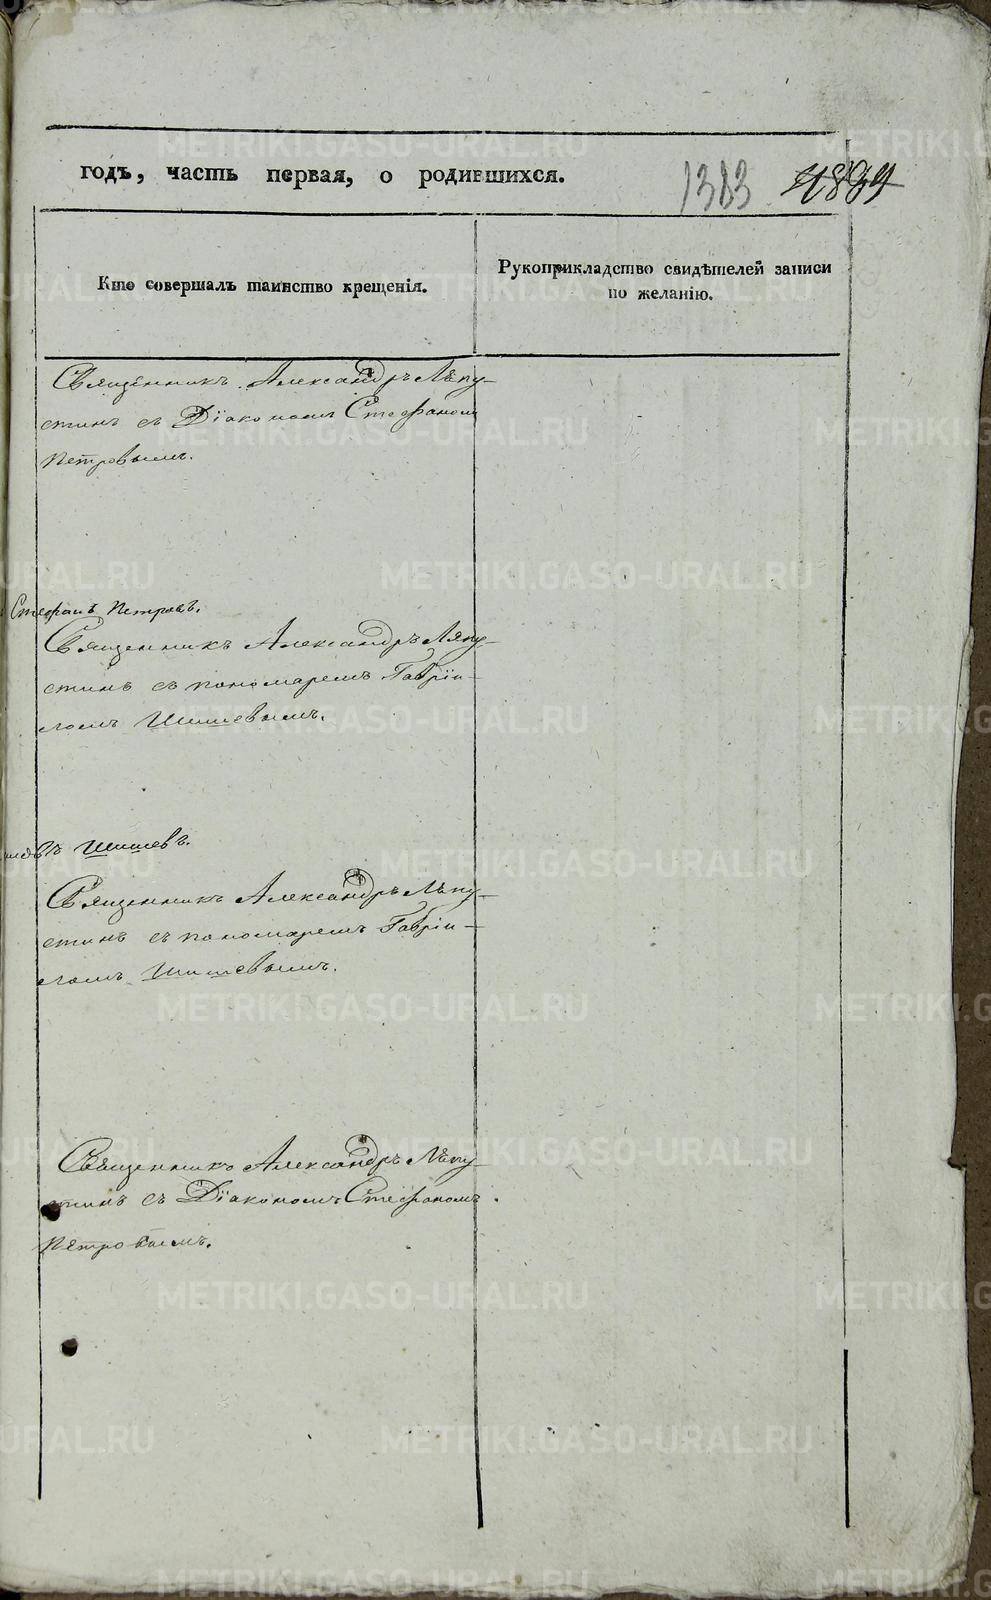 годъ, часть первая, о родившихся.
1383 1839
Кто совершалъ таинство крещенія.
Рукоприкладство свидѣтелей записи
по желанію.
Священникъ Александръ Ляпу-
стинъ съ Діакономъ Стефаномъ
Петровымъ.
Стефанъ Петровъ.
Священникъ Александръ Ляпу-
стинъ съ пономаремъ Гавріи-
ломъ Шишевымъ.
Шишевъ.
Священникъ Александръ Ляпу-
стинъ съ пономаремъ Гавріи-
ломъ Шишевымъ.
Священникъ Александръ Ляпу-
стинъ съ Діакономъ Стефаномъ
Петровымъ.
METRIKI.GASO-URAL.RU